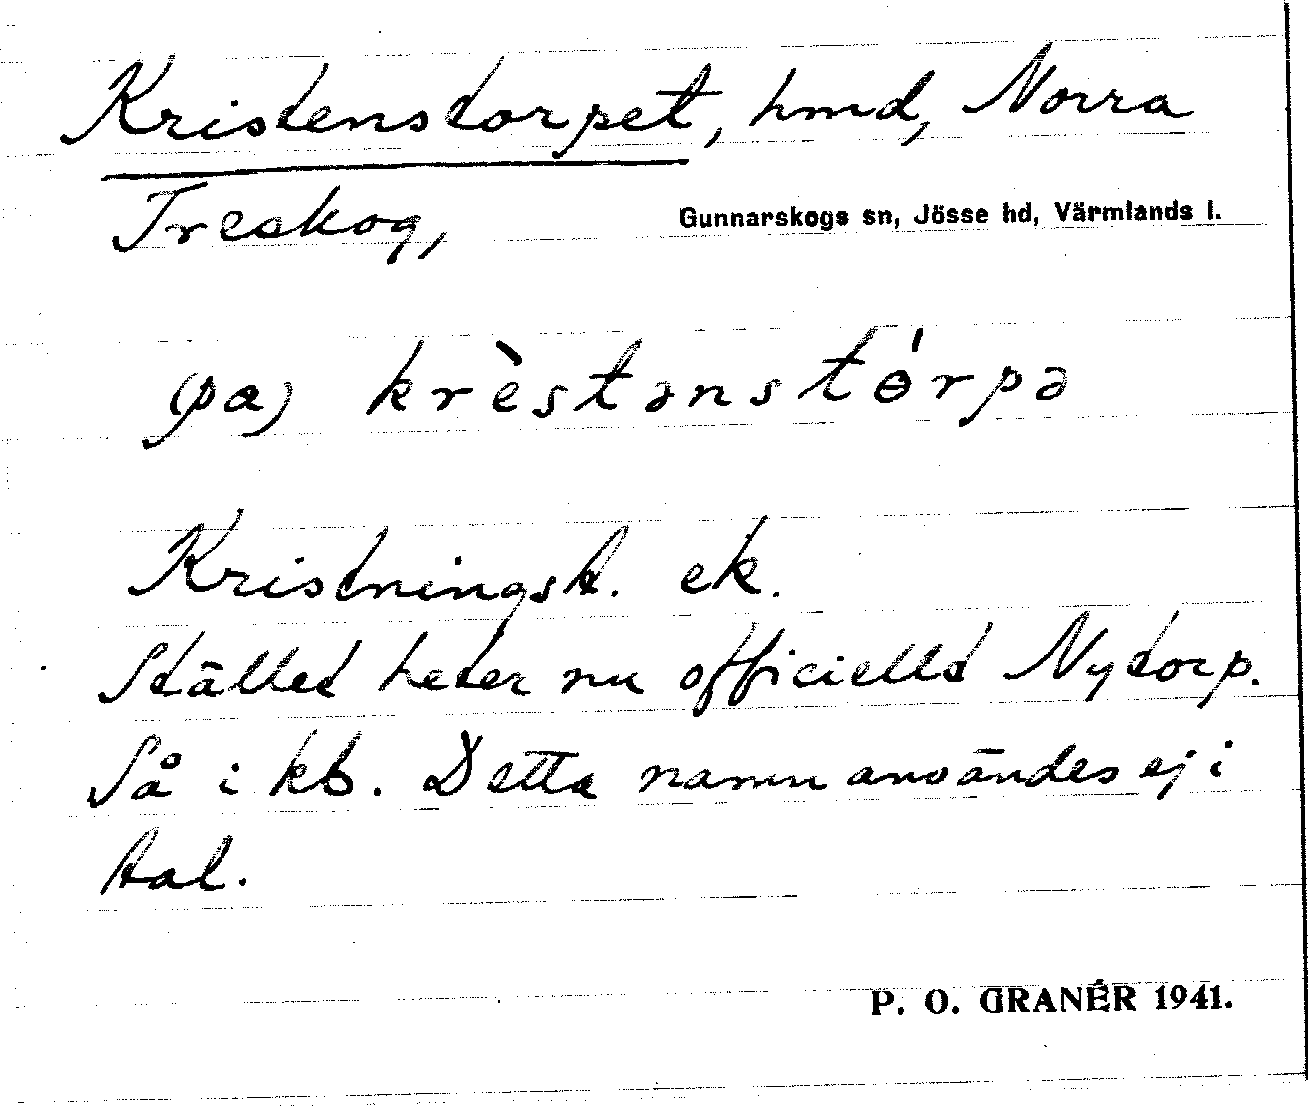 Kristenstorpet, hmd, Norra
Treskog, Gunnarskogs sn, Jösse hd, Värmlands l.
(pa) krèstənstɵ́rpə
Kristningsk. ek.
Stället heter nu officiellt Nytorp.
Så i kb. Detta namn användes ej i
tal.
P. O. GRANÉR 1941.